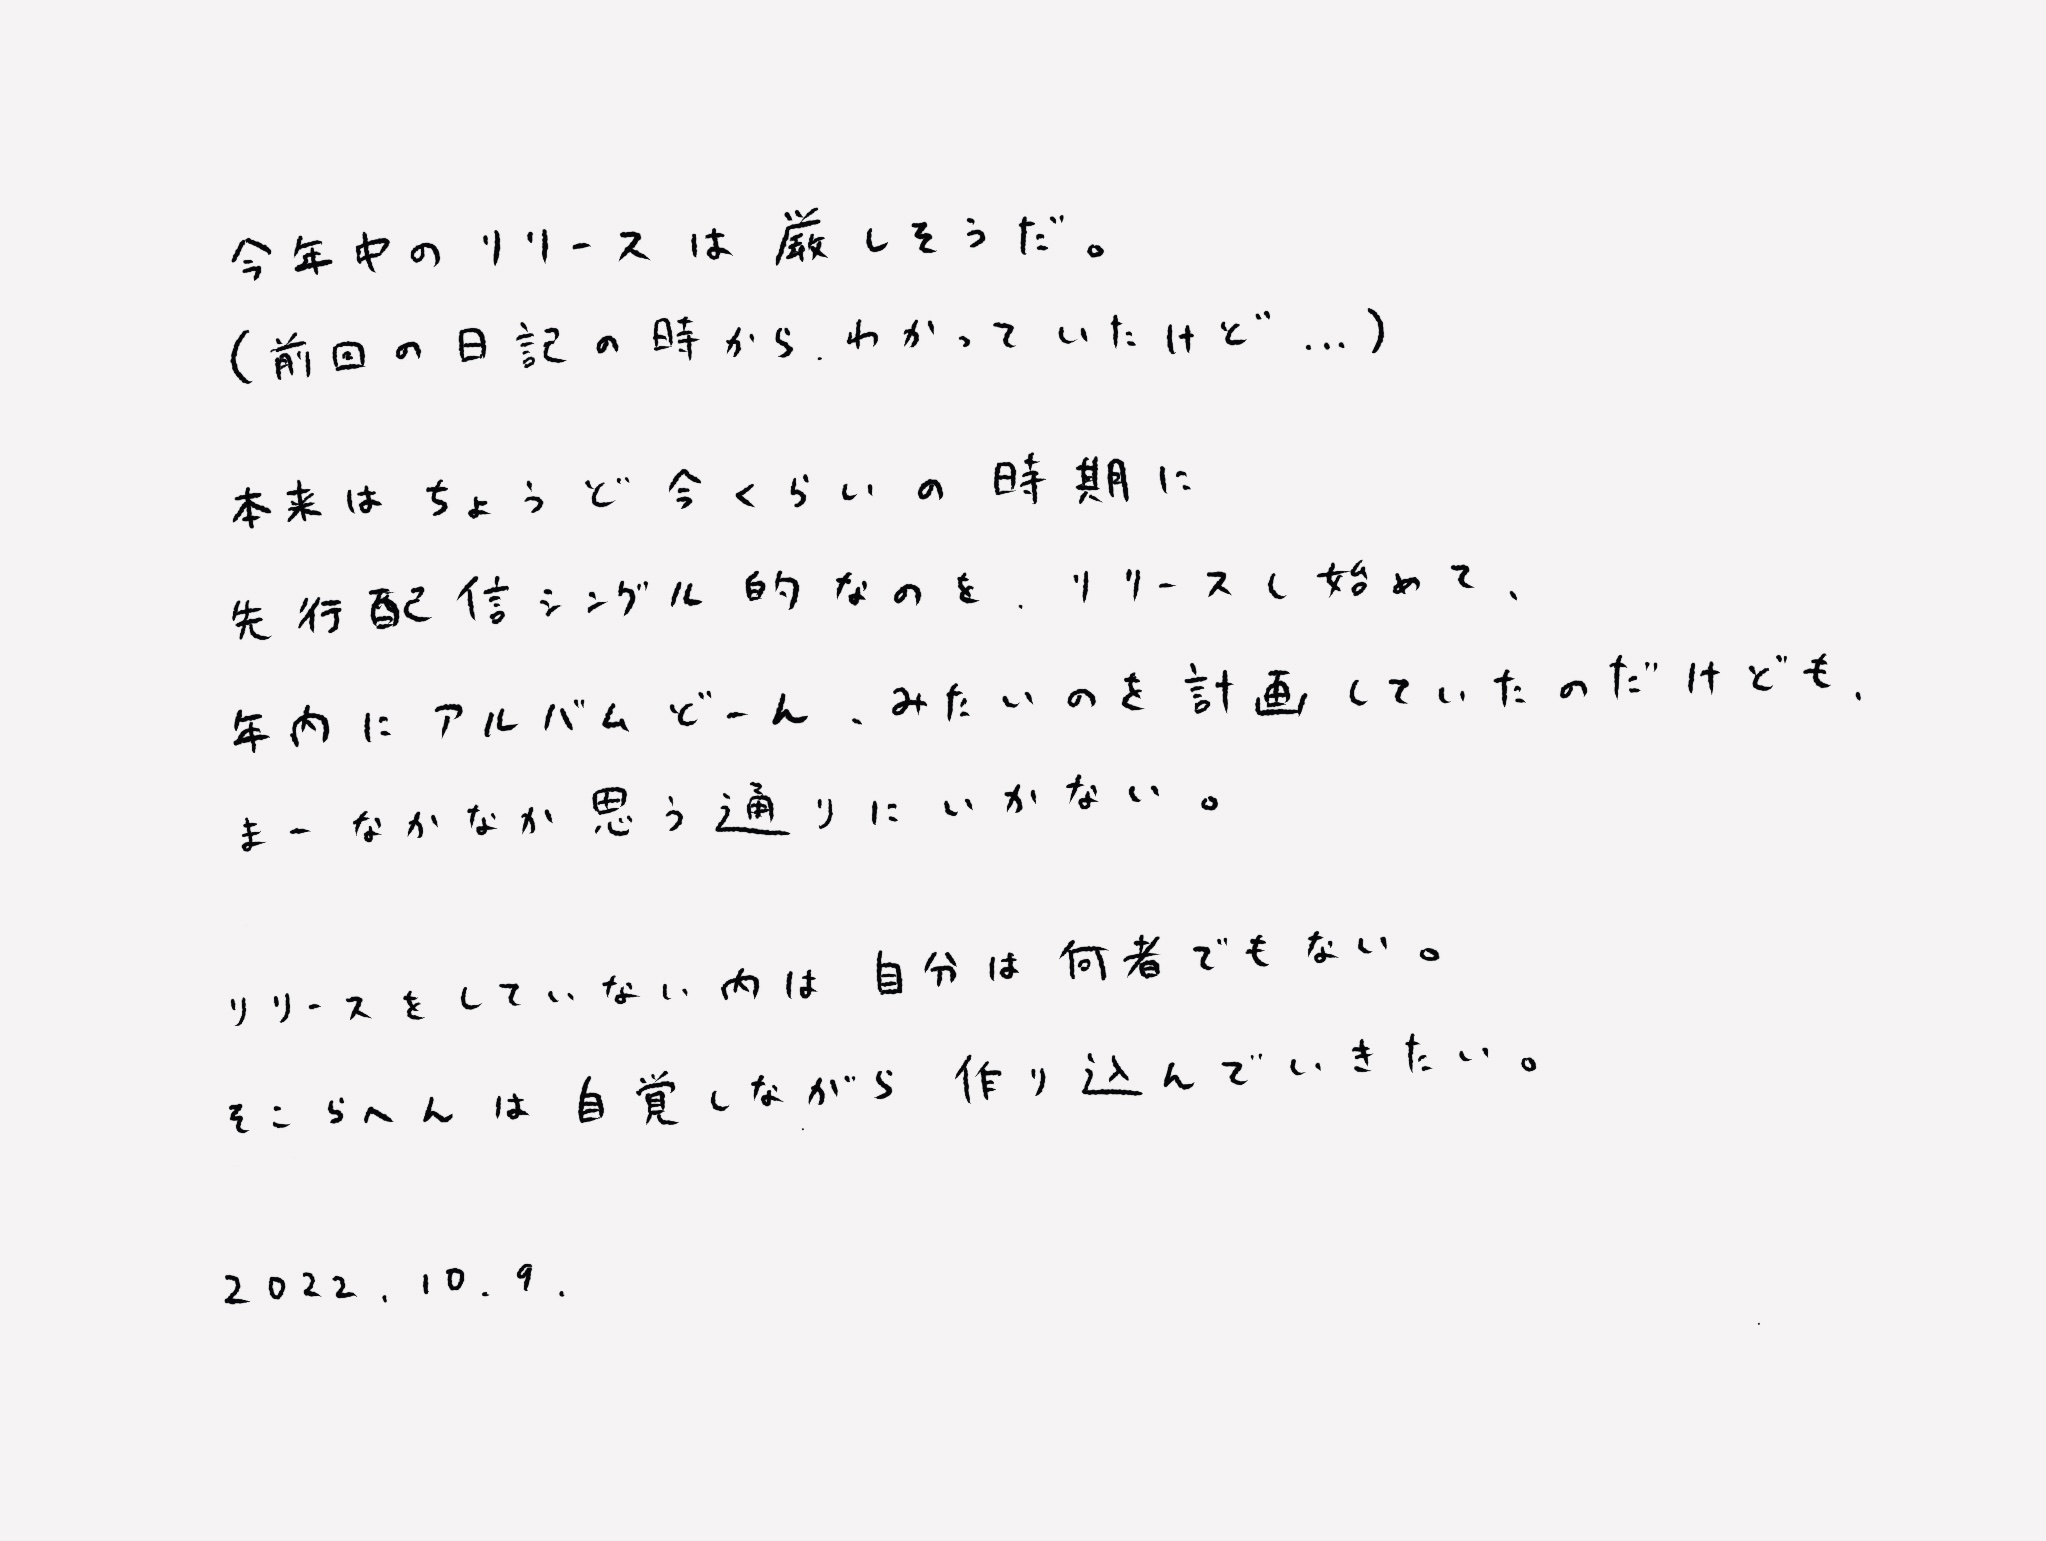 今年中のリリースは厳しそうだ。
(前回の日記の時から、わかっていたけど…)
本来はちょうど今くらいの時期に
先行配信シングル的なのを、リリースし始めて、
年内にアルバムどーん、みたいのを計画していたのだけども、
まーなかなか思う通りにいかない。
リリースをしていない内は自分は何者でもない。
そこらへんは自覚しながら作り込んでいきたい。
2022.10.9.